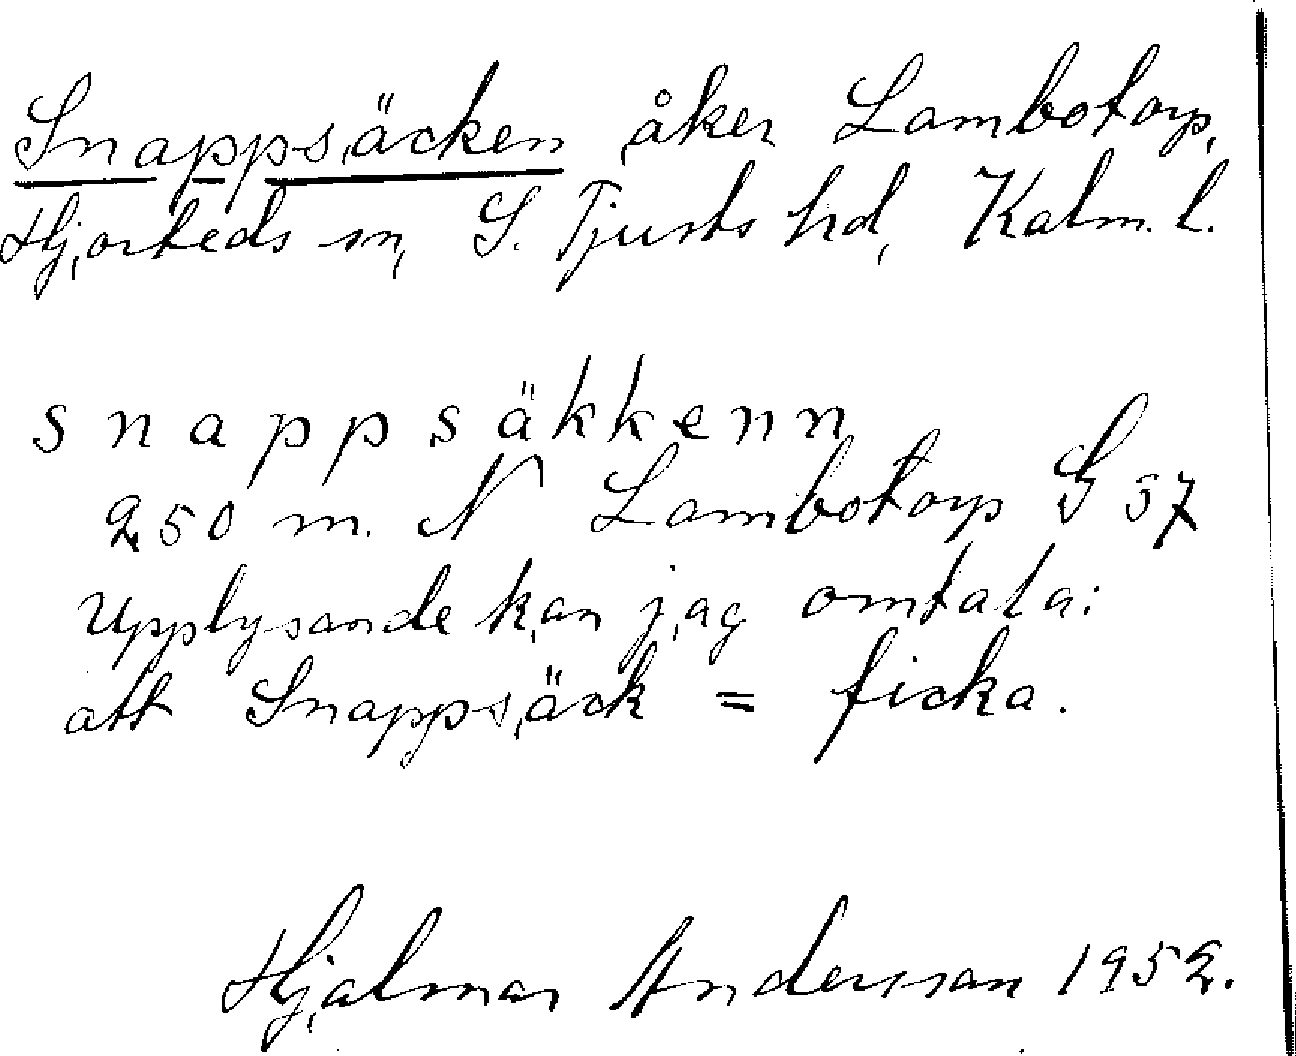 Snappsäcken åker Lambotorp,
Hjorteds sn, S. Tjusts hd, Kalm. l.
snappsäkkenn
250 m. N Lambotorp G 57
Upplysande kan jag omtala:
att Snappsäck = ficka.
Hjalmar Andersson 1952.